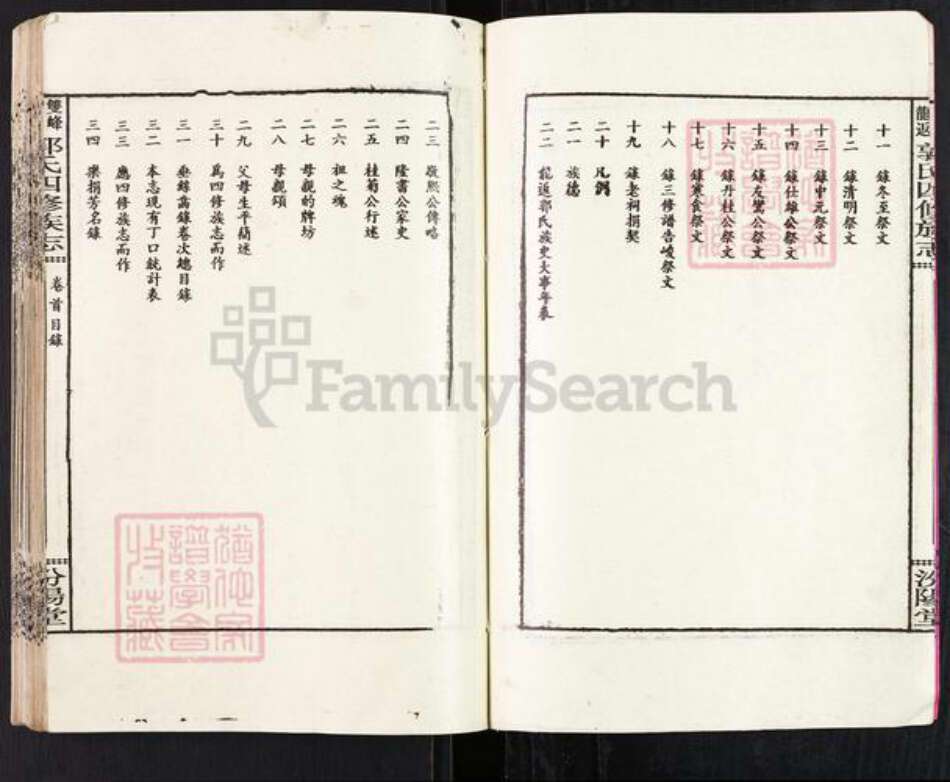 龍返 郭氏四修族志
汾陽堂
十一 錄冬至祭文
十二 錄清明祭文
十三 錄中元祭文
十四 錄仕雄公祭文
十五 錄左鸞公祭文
十六 錄丹桂公祭文
十七 錄寒食祭文
十八 錄三修譜告竣祭文
十九 錄老祠捐契
二十 凡例
二一 族德
二二 龍返郭氏族史大事年表
二三 敬熙公傳略
二四 隆書公家史
二五 桂菊公行述
二六 祖之魂
二七 母親的牌坊
二八 母親頌
二九 父母生平簡述
三十 爲四修族志而作
三一 垂絲齒錄卷次總目錄
三二 本志現有丁口統計表
三三 應四修族志而作
三四 樂捐芳名錄
雙峰 郭氏四修族志
卷首 目錄
汾陽堂
猶他家譜學會收藏
猶他家譜學會收藏
FamilySearch